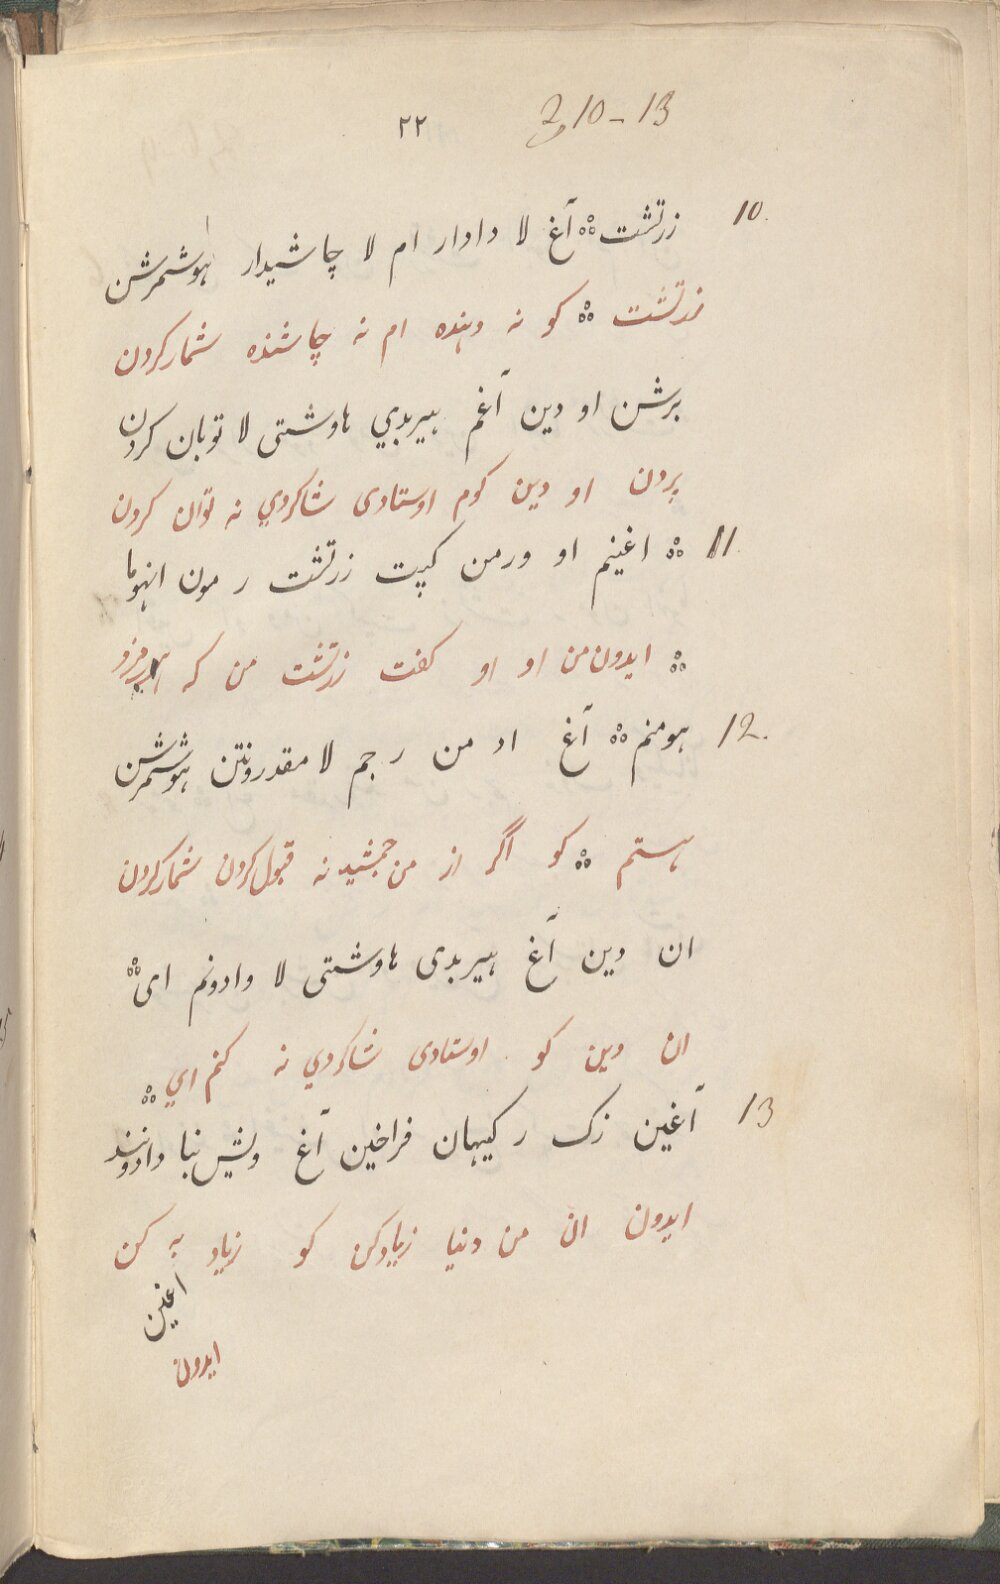 ۲۲ 3 10-13
10. زرتشت ⁘ آغ لا دادار ام لا چاشیدار هوشمرشن
زرتشت ⁘ کو نه دهنده ام نه چاشنده شمارکردن
برشن او دین آغم هیربدي هاوشتی لا توبان کردن
بردن او دین کوم اوستادی شاکردي نه توان کردن
11. ⁘ اغینم او ورمن کپت زرتشت ر مون انهوما
⁘ ایدون من او او کفت زرتشت من که
12. هومنم ⁘ آغ اد من ر جم لا مقدرونتن هوشمرشن
هستم ⁘ کو اگر از من جمشید نه قبول کردن شمارکردن
ان دین آغ هیربدی هاوشتی لا وادونم ای ⁘
ان دین کو اوستادی شاکردي نه کنم اي ⁘
13 آغین زک ر کیهان فراخین آغ ویش بنا وادونند
ایدون ان من دنیا زیادکن کو زیاد به کن
اغین
ایدون